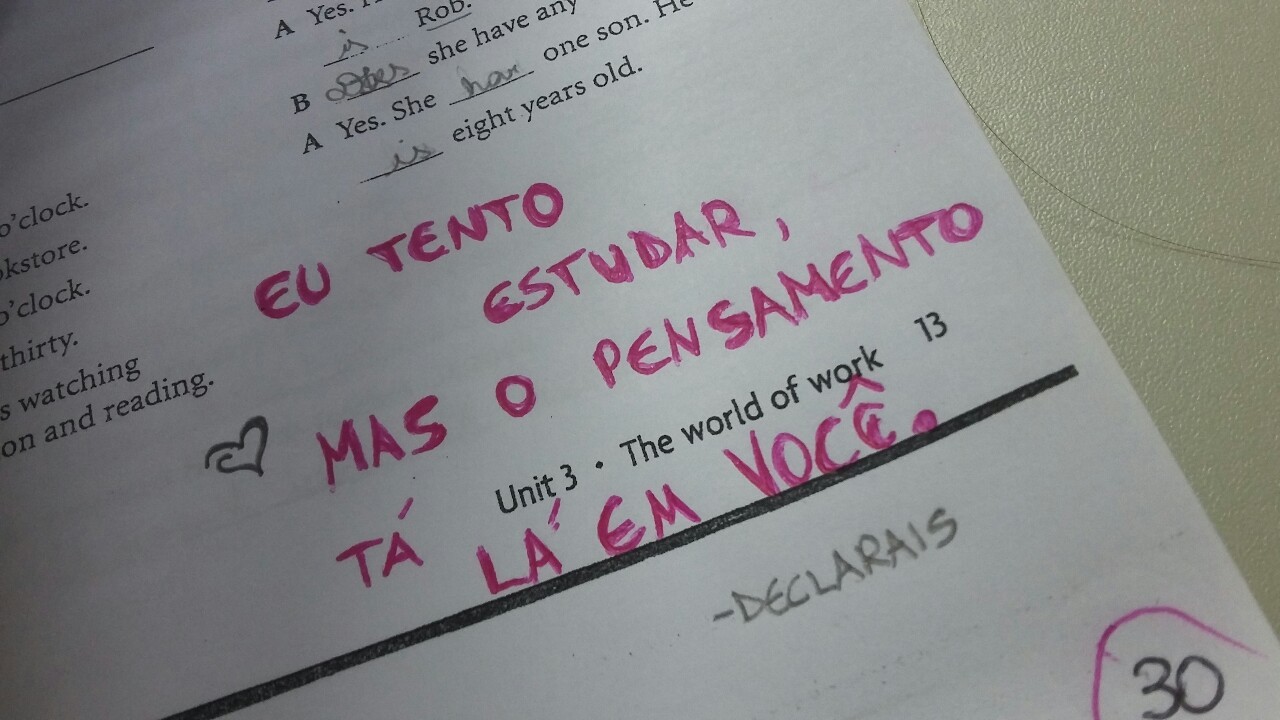 A Yes.
is Rob.
B Does she have any
A Yes. She has one son. He
is eight years old.
o'clock.
kstore.
o'clock.
thirty.
s watching
on and reading.
EU TENTO
ESTUDAR,
MAS O PENSAMENTO
TÁ LÁ EM VOCÊ.
Unit 3 • The world of work 13
-DECLARAIS
30